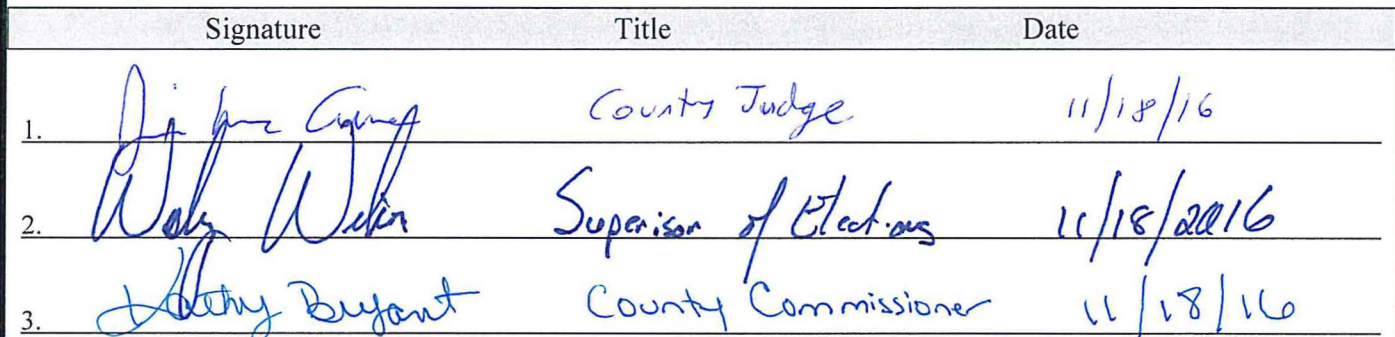 Signature Title Date
1. County Judge 11/18/16
2. Supervisor of Elections 11/18/2016
3. Kathy Bryant County Commissioner 11/18/16